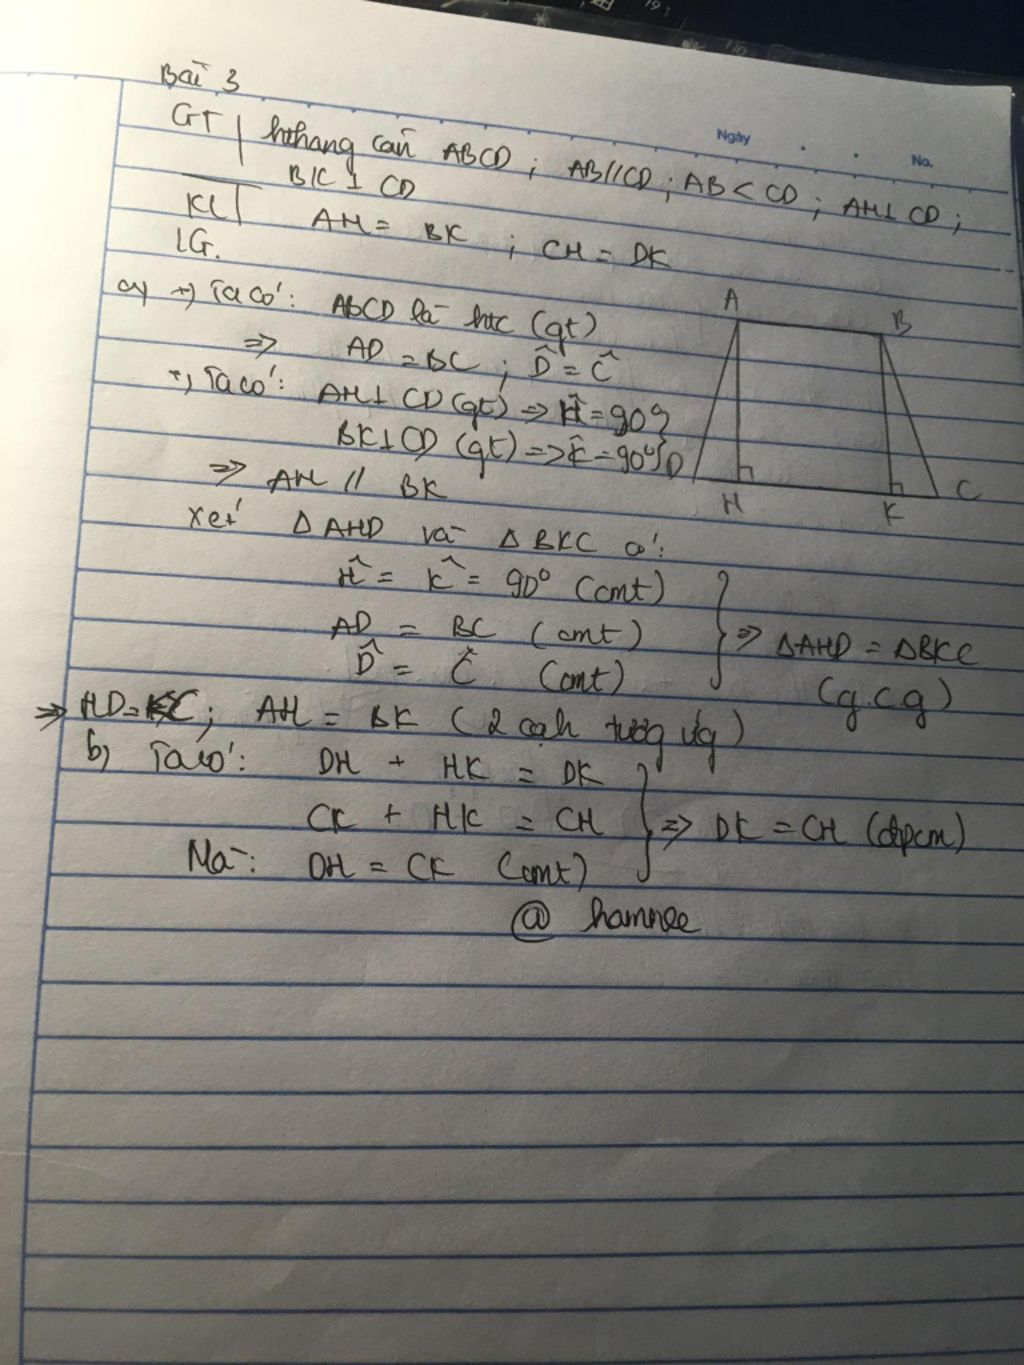 Bài 3
Ngày
No.
GT | hthang cân ABCD ; AB//CD ; AB < CD ; AH⊥ CD ;
BK ⊥ CD
KL | AH = BK ; CH = DK
LG.
a) +) Ta có: ABCD là htc (gt)
=> AD = BC ; D̂ = Ĉ
+) Ta có: AH⊥ CD (gt) => Ĥ = 90°}
BK⊥CD (gt) => K̂ = 90°}
=> AH // BK
Xét Δ AHD và Δ BKC có:
Ĥ = K̂ = 90° (cmt)
AD = BC (cmt) } => ΔAHD = ΔBKC
D̂ = Ĉ (cmt) (g.c.g)
=> HD = KC ; AH = BK ( 2 cạh tươg ứg )
b) Ta có: DH + HK = DK
CK + HK = CH } => DK = CH (đpcm)
Mà: DH = CK (cmt)
@ hamnee
A
B
D
H
K
C